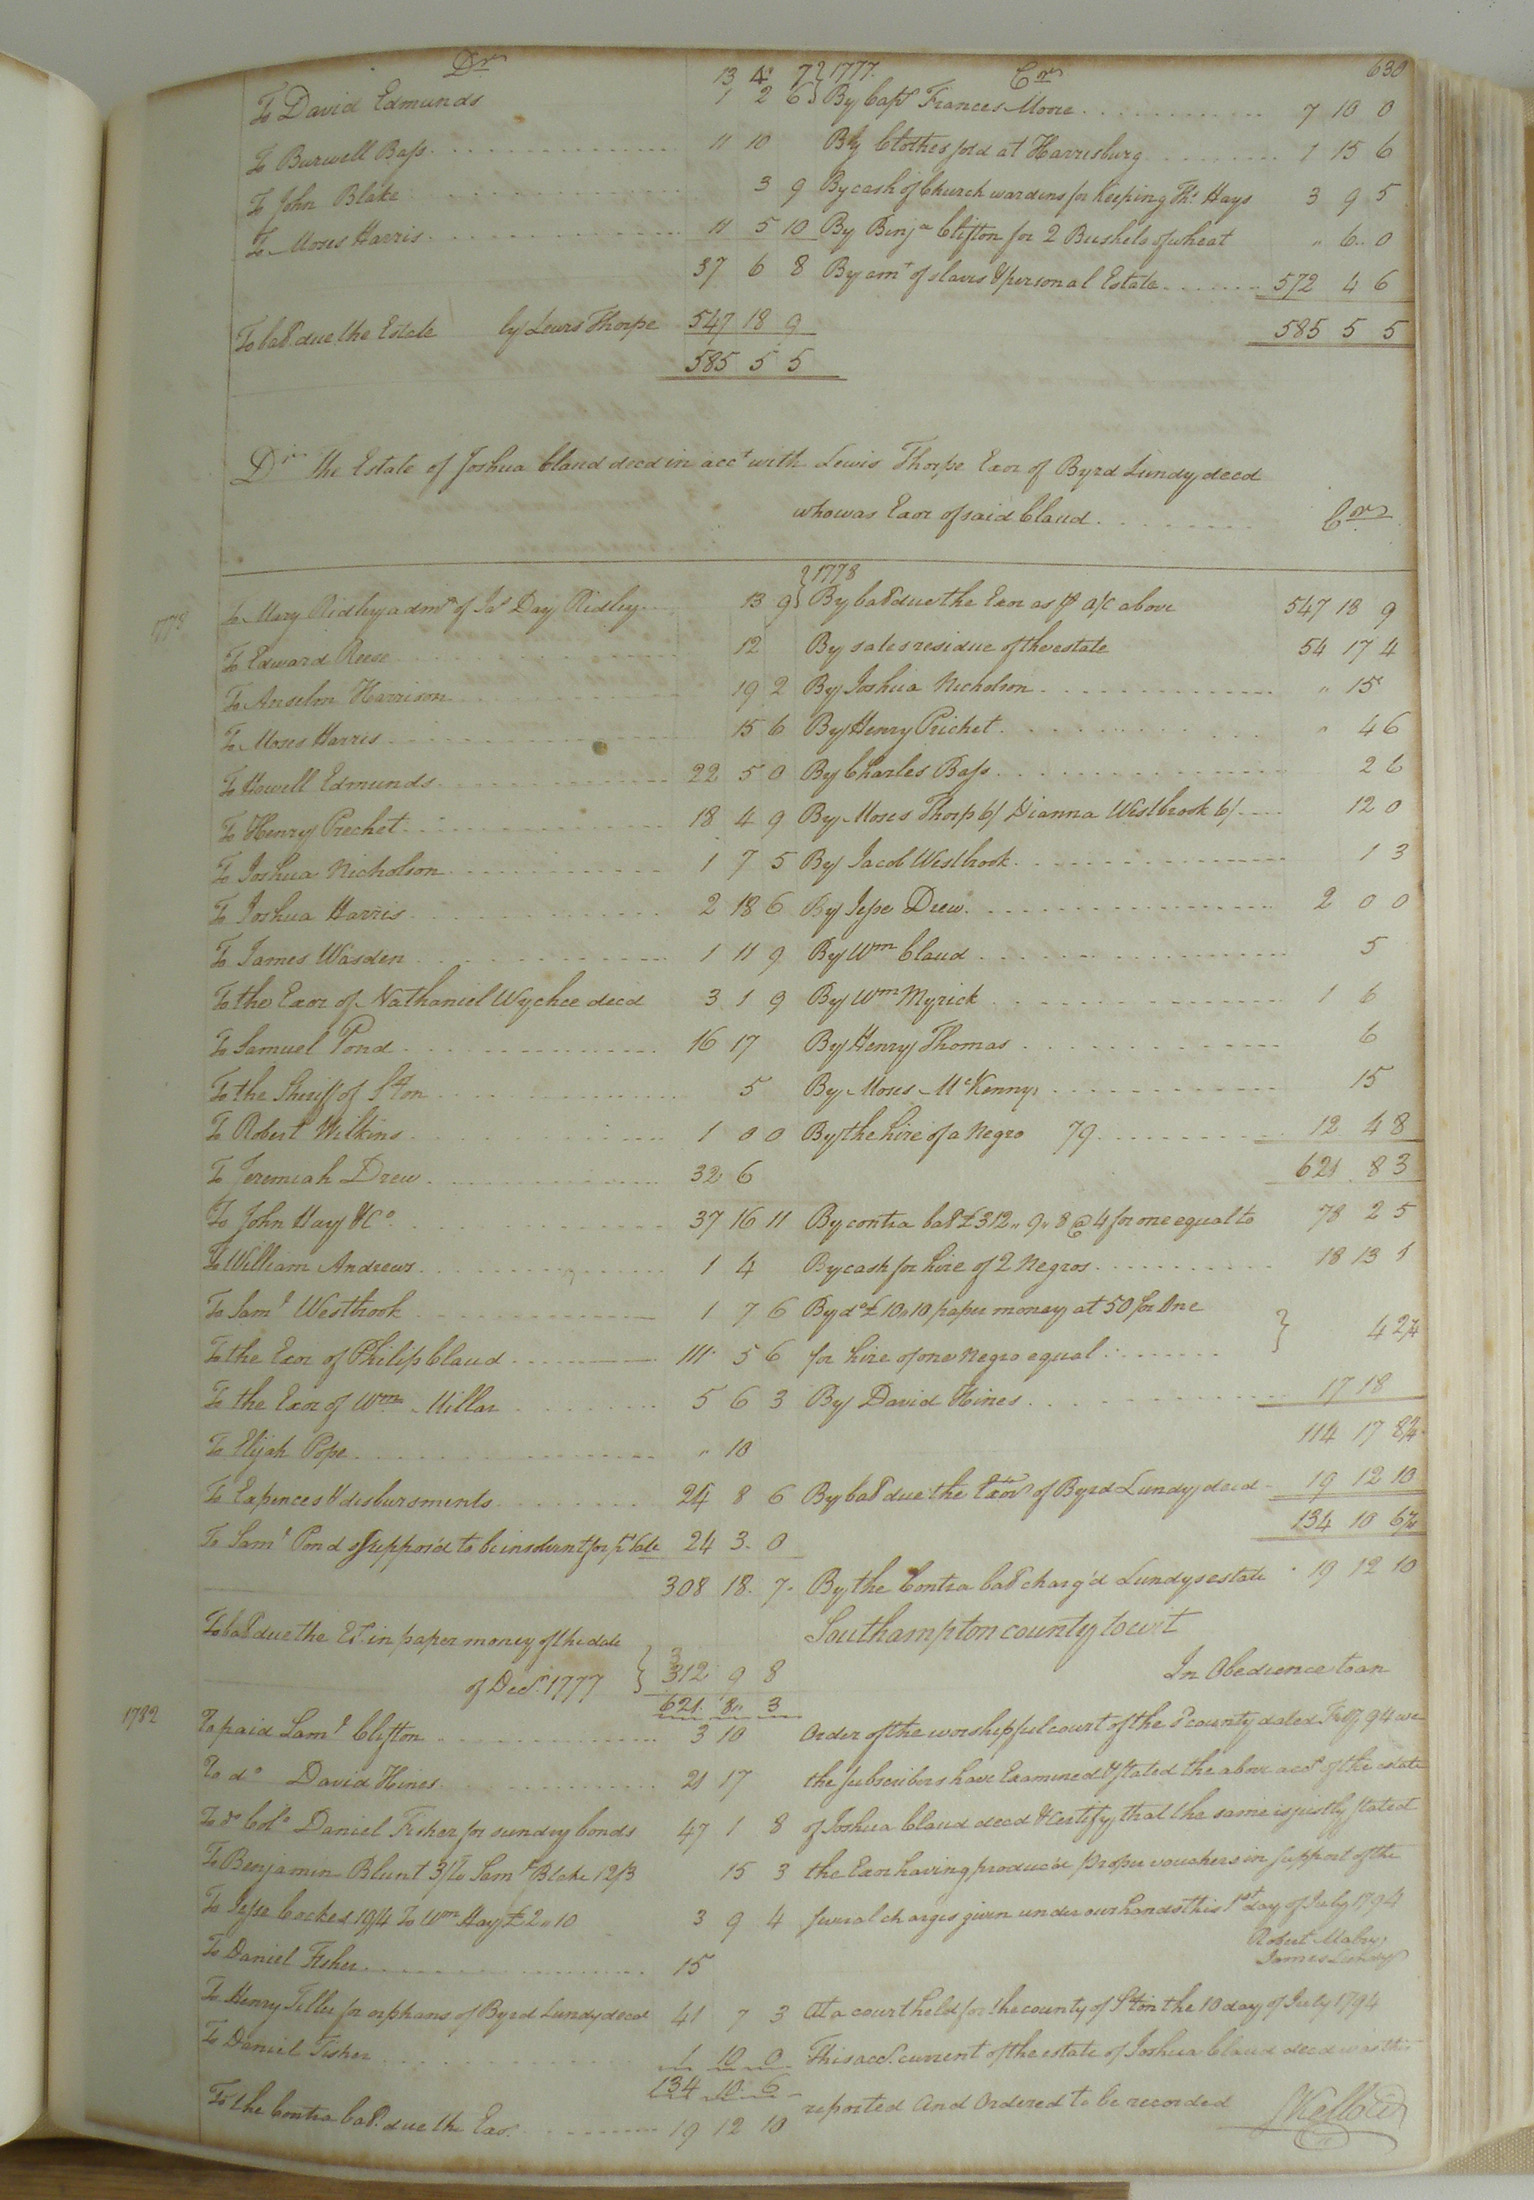 Dr 13 4 7 } 1777. Cr 630
To David Edmunds 1 2 6 } By Capt Frances Moore 7 10 0
To Burwell Bass 11 10 By Clothes sold at Harrisburg 1 15 6
To John Blake 3 9 By cash of Church wardens for keeping Ths Hays 3 9 5
To Moses Harris 11 5 10 By Benja Clifton for 2 Bushels of wheat " 6 0
37 6 8 By amt of slaves & personal Estate 572 4 6
To bal due the Estate by Lewis Thorpe 547 18 9 585 5 5
585 5 5
Dr The Estate of Joshua Claud decd in acct with Lewis Thorpe Exor of Byrd Lundy decd
who was Exor of said Claud Cr
1778 } 1778
To Mary Ridley admr of Jas Day Ridley 13 9 } By bal due the Exor as pr a/c above 547 18 9
To Edward Reese 12 By sales residue of the estate 54 17 4
To Anselm Harrison 19 2 By Joshua Nicholson " 15
To Moses Harris 15 6 By Henry Prichet " 4 6
To Howell Edmunds 22 5 0 By Charles Bass 2 6
To Henry Prechet 18 4 9 By Moses Thorp 6/ Dianna Westbrook 6/ 12 0
To Joshua Nicholson 1 7 5 By Jacob Westbrook 1 3
To Joshua Harris 2 18 6 By Jesse Drew 2 0 0
To James Wasden 1 11 9 By Wm Claud 5
To the Exor of Nathaniel Wychee decd 3 1 9 By Wm Myrick 1 6
To Samuel Pond 16 17 By Henry Thomas 6
To the Sheriff of S'ton 5 By Moses McKenny 15
To Robert Wilkins 1 0 0 By the hire of a Negro 79 12 4 8
To Jeremiah Drew 32 6 621 8 3
To John Hay & Co 37 16 11 By contra bal £312 " 9 " 8 @ 4 for one equal to 78 2 5
To William Andrews 1 4 By cash for hire of 2 Negros 18 13 1
To Saml Westbrook 1 7 6 By do £10 " 10 paper money at 50 for One
To the Exor of Philip Claud 111 5 6 for hire of one Negro equal } 4 2¼
To the Exor of Wm Millar 5 6 3 By David Hines 17 18
To Elijah Pope " 10 114 17 8¼
To Expences & disbursments 24 8 6 By bal due the Exor of Byrd Lundy decd 19 12 10
To Saml Pond suppos'd to be insolvent for pr Sale 24 3 0 134 10 6¼
308 18 7 By the Contra bal charg'd Lundys estate 19 12 10
To bal due the Et in paper money of the date Southampton county towit
of Decr 1777 } 312 9 8 In Obedience to an
621 8 3
1782 To paid Saml Clifton 3 10 Order of the worshipful court of the sd county dated Feby 94 we
To do David Hines 21 17 the subscribers have Examined & stated the above acct of the estate
To do Colo Daniel Fisher for sundry bonds 47 1 8 of Joshua Claud decd & certify that the same is justly stated
To Benjamin Blunt 3/ To Saml Blake 12/3 15 3 the Exor having produc'd proper vouchers in support of the
To Jesse Cocker 19/4 To Wm Hay £2 " 10 3 9 4 several charges given under our hands this 1st day of July 1794
Robert Mabry
To Daniel Fisher 15 James Lundy
To Henry Teller for orphans of Byrd Lundy decd 41 7 3 At a court held for the county of S'ton the 10 day of July 1794
To Daniel Fisher 1 10 0 This acct current of the estate of Joshua Claud decd was this
134 10 6 reported and Ordered to be recorded
To the Contra bal due the Exor 19 12 10